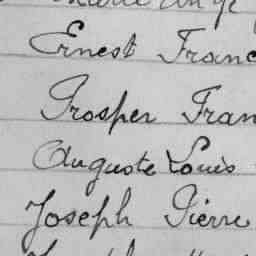 Marie Ange
Ernest Franc
Prosper Fran
Auguste Louis
Joseph Pierre